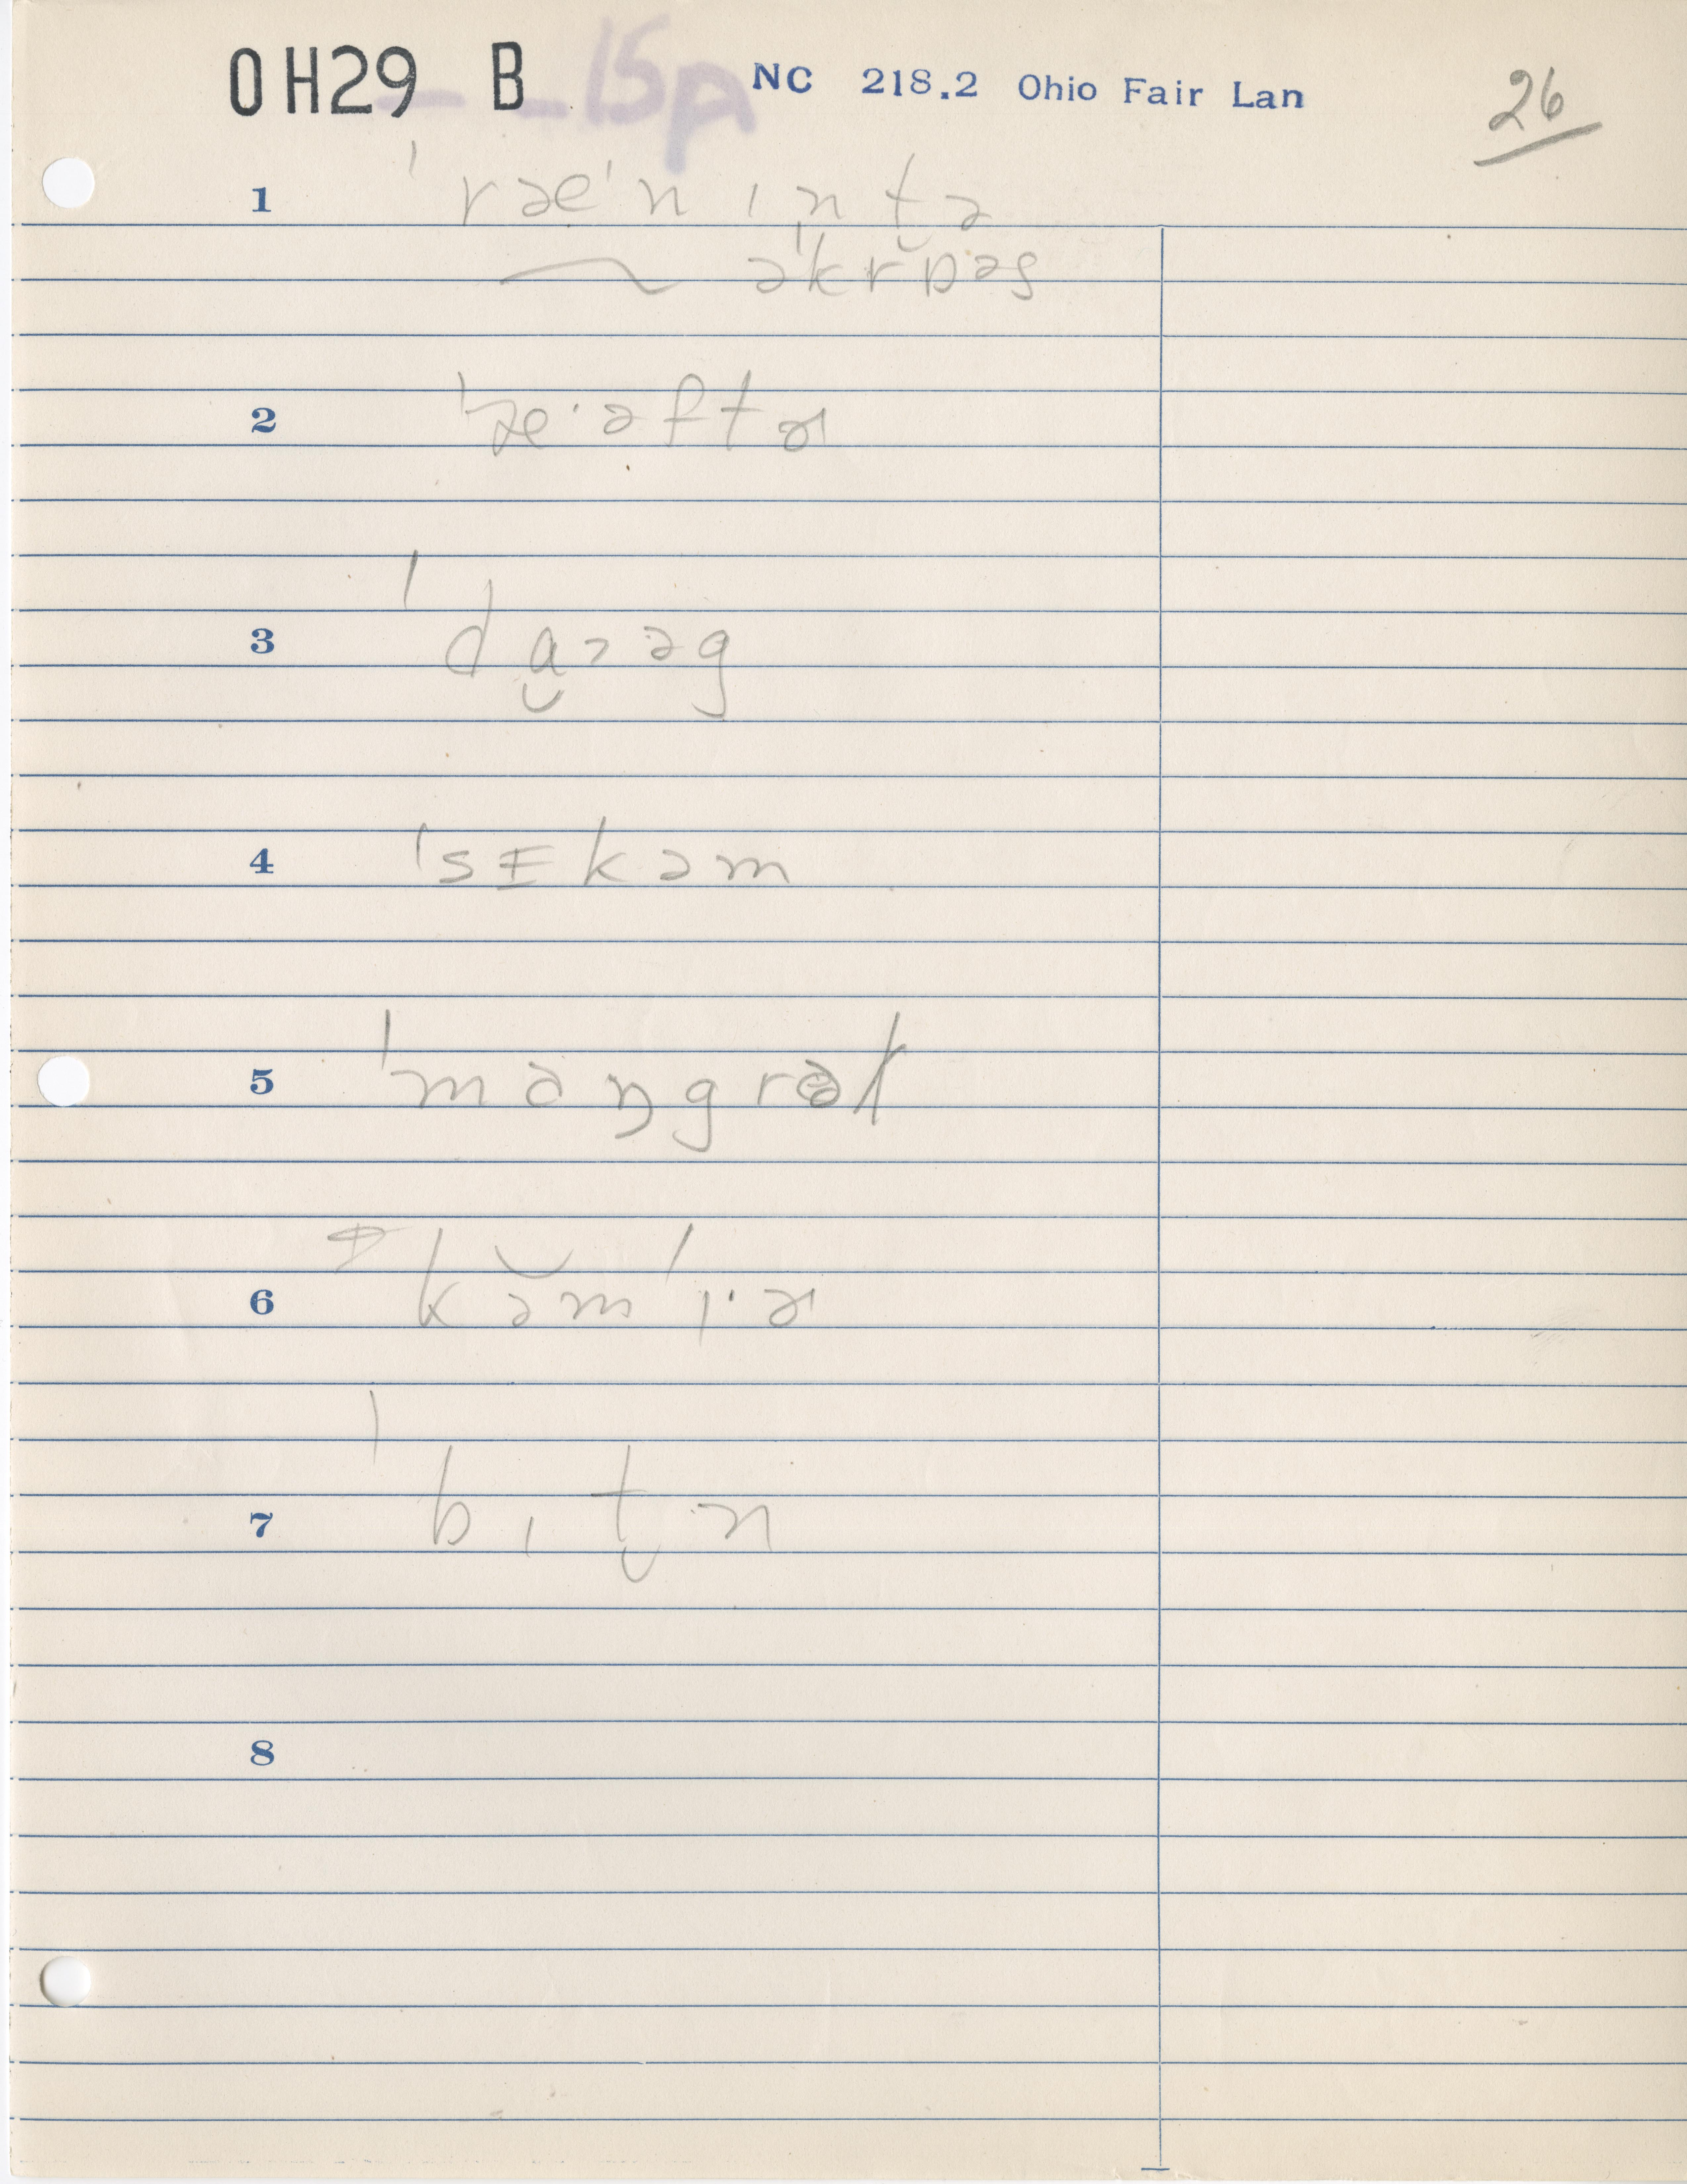 OH29 B 15p NC 218.2 Ohio Fair Lan 26
1 ˈræˈn ɪn tə
~ əˈkrɒəs
2 ˈæ·əftɚ
3 ˈdɑ̯ɔəg
4 ˈsɪkəm
5 ˈmɑŋgrəl
6 kə̆mˈɪ·ɚ
7 ˈbɪt̬n
8